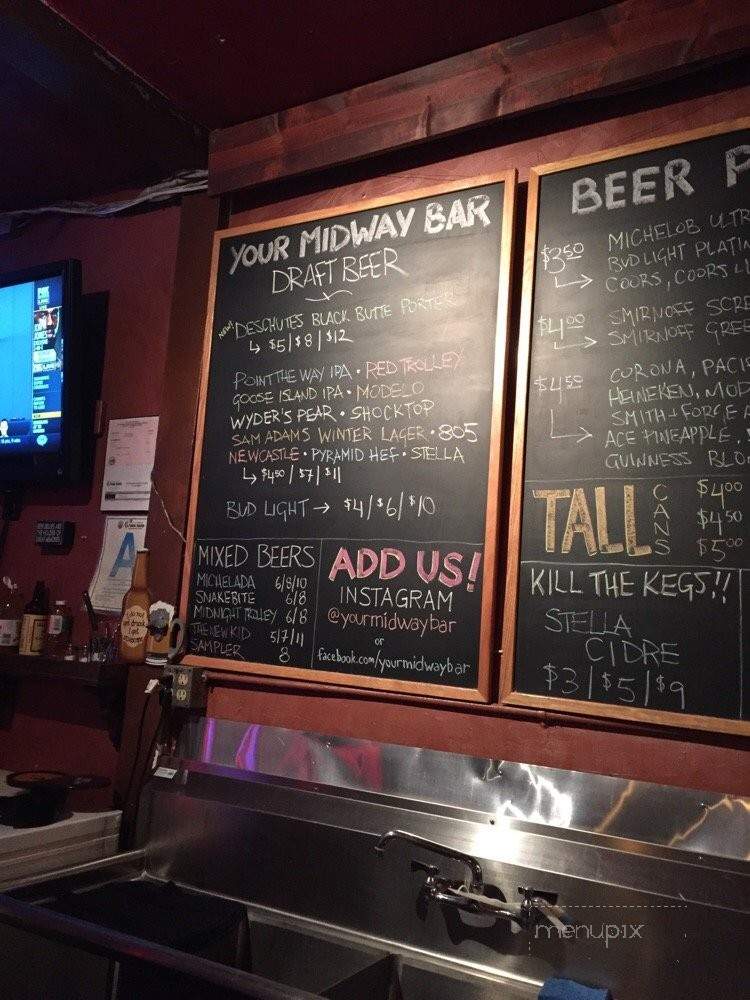 YOUR MIDWAY BAR
DRAFT BEER
NEW! DESCHUTES BLACK BUTTE PORTER
↳ $5/$8/$12
POINT THE WAY IPA • RED TROLLEY
GOOSE ISLAND IPA • MODELO
WYDER'S PEAR • SHOCKTOP
SAM ADAMS WINTER LAGER • 805
NEWCASTLE • PYRAMID HEF • STELLA
↳ $450/$7/$11
BUD LIGHT → $4/$6/$10
MIXED BEERS
MICHELADA 6/8/10
SNAKEBITE 6/8
MIDNIGHT TROLLEY 6/8
THE NEW KID 5/7/11
SAMPLER 8
ADD US!
INSTAGRAM
@yourmidwaybar
or
facebook.com/yourmidwaybar
BEER
$3.50
MICHELOB ULTR
BUD LIGHT PLATI
COORS, COORS LI
$4.00
SMIRNOFF SCRE
SMIRNOFF GREE
$4.50
CORONA, PACI
HEINEKEN, MOD
SMITH + FORGE
ACE PINEAPPLE,
GUINNESS BLO
TALL
CANS
$4.00
$4.50
$5.00
KILL THE KEGS!!
STELLA
CIDRE
$3/$5/$9
A
menupix